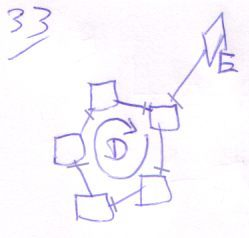 33
E
D